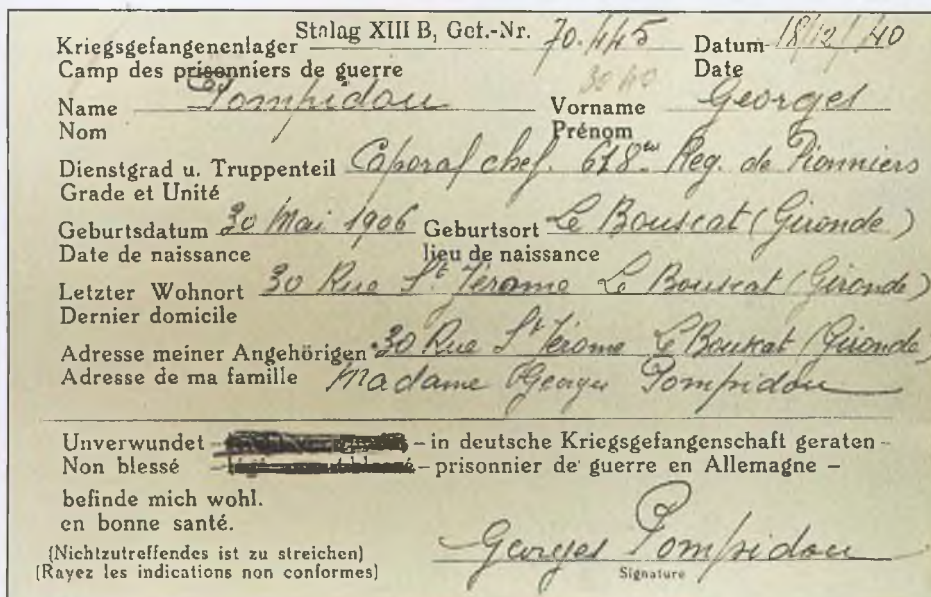 Stalag XIII B, Gef.-Nr. 70.445
Kriegsgefangenenlager Datum 18/12/40
Camp des prisonniers de guerre 3040 Date
Name Pompidou Vorname Georges
Nom Prénom
Dienstgrad u. Truppenteil Caporal chef. 618me Reg. de Pionniers
Grade et Unité
Geburtsdatum 30 Mai 1906 Geburtsort Le Bouscat (Gironde)
Date de naissance lieu de naissance
Letzter Wohnort 30 Rue St Jérome Le Bouscat (Gironde)
Dernier domicile
Adresse meiner Angehörigen 30 Rue St Jérome Le Bouscat (Gironde)
Adresse de ma famille Madame Georges Pompidou
Unverwundet – – in deutsche Kriegsgefangenschaft geraten –
Non blessé – – prisonnier de guerre en Allemagne –
befinde mich wohl.
en bonne santé.
(Nichtzutreffendes ist zu streichen)
(Rayez les indications non conformes)
Georges Pompidou
Signature